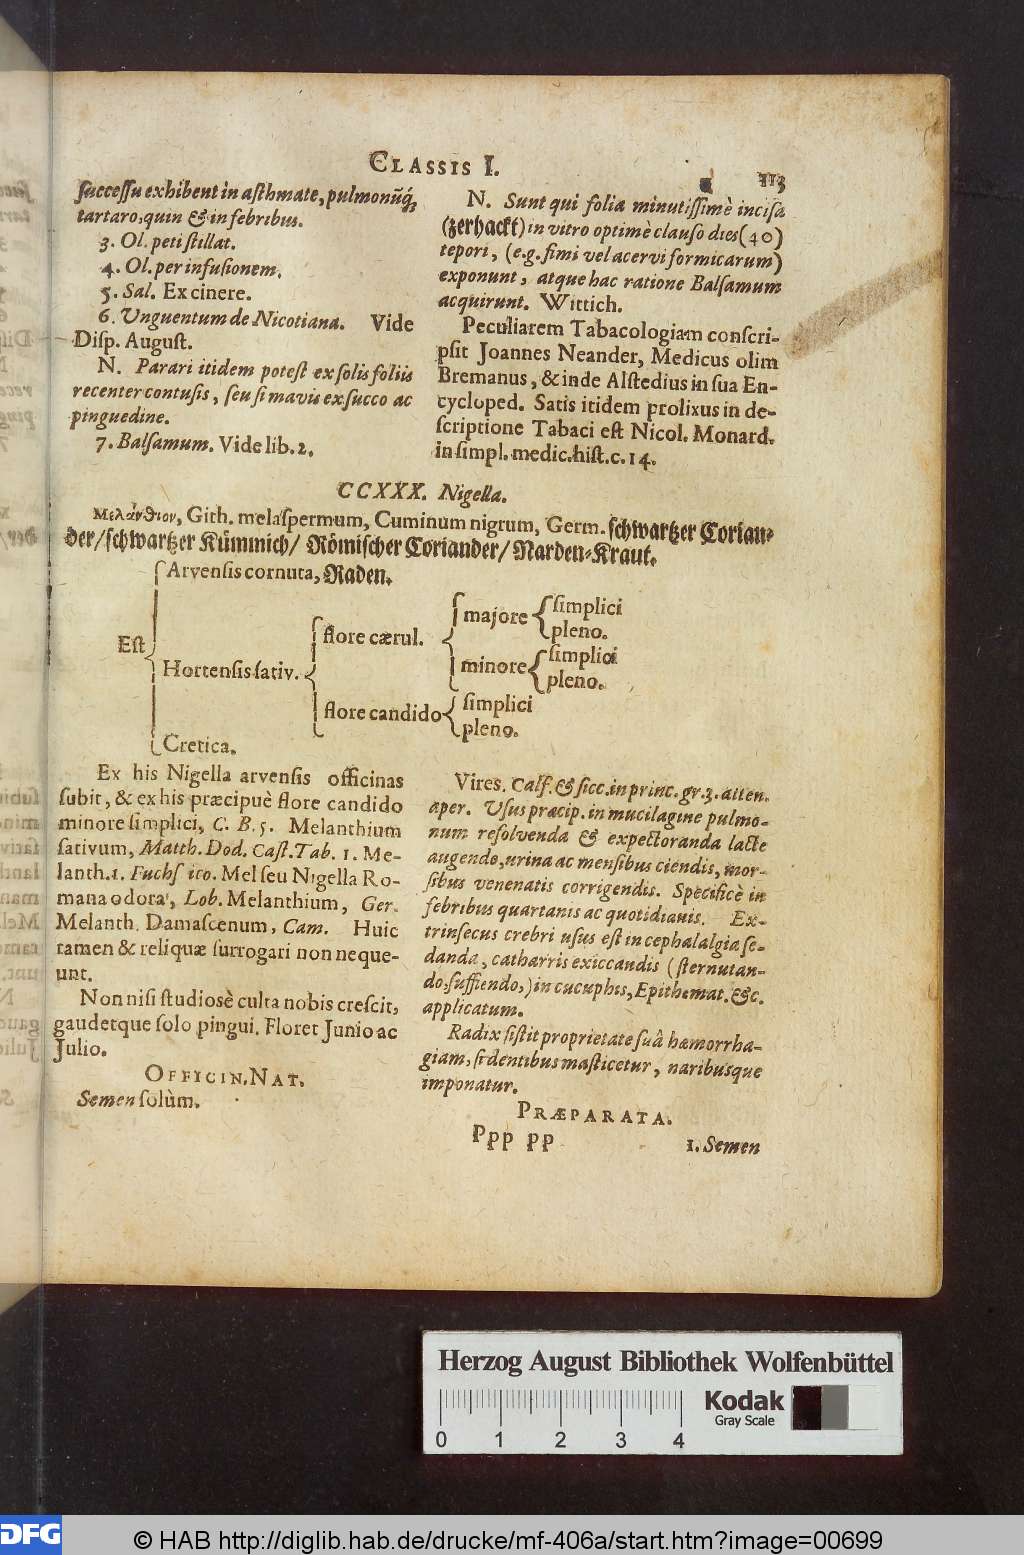 CLASSIS I.
113
ſucceſſu exhibent in aſthmate, pulmonũq́;
tartaro, quin & in febribus.
3. Ol. peti ſtillat.
4. Ol. per infuſionem.
5. Sal. Ex cinere.
6. Unguentum de Nicotiana. Vide
Diſp. Auguſt.
N. Parari itidem poteſt ex ſolis foliis
recenter contuſis, ſeu ſi mavis ex ſucco ac
pinguedine.
7. Balſamum. Vide lib. 2.
N. Sunt qui folia minutiſſimè inciſa
(zerhackt) in vitro optimè clauſo dies (40)
tepori, (e.g. fimi vel acervi formicarum)
exponunt, atque hac ratione Balſamum
acquirunt. Wittich.
Peculiarem Tabacologiam conſcri-
pſit Joannes Neander, Medicus olim
Bremanus, & inde Alſtedius in ſua En-
cycloped. Satis itidem prolixus in de-
ſcriptione Tabaci eſt Nicol. Monard.
in ſimpl. medic. hiſt. c. 14.
CCXXX. Nigella.
Μελάνθιον, Gith. melaſpermum, Cuminum nigrum, Germ. ſchwartzer Corian-
der/ ſchwartzer Kümmich/ Römiſcher Coriander/ Narden-Kraut.
Eſt
Arvenſis cornuta, Raden.
Hortenſis ſativ.
flore cærul.
majore
ſimplici
pleno.
minore
ſimplici
pleno.
flore candido
ſimplici
pleno.
Cretica.
Ex his Nigella arvenſis officinas
ſubit, & ex his præcipuè flore candido
minore ſimplici, C. B. 5. Melanthium
ſativum, Matth. Dod. Caſt. Tab. 1. Me-
lanth. 1. Fuchſ ico. Mel ſeu Nigella Ro-
mana odora, Lob. Melanthium, Ger.
Melanth. Damaſcenum, Cam. Huic
tamen & reliquæ ſurrogari non neque-
unt.
Non niſi ſtudiosè culta nobis creſcit,
gaudetque ſolo pingui. Floret Junio ac
Julio.
OFFICIN. NAT.
Semen ſolùm.
Vires. Calf. & ſicc. in princ. gr. 3. atten.
aper. Uſus præcip. in mucilagine pulmo-
num reſolvenda & expectoranda lacte
augendo, urina ac menſibus ciendis, mor-
ſibus venenatis corrigendis. Specificè in
febribus quartanis ac quotidianis. Ex-
trinſecus crebri uſus eſt in cephalalgia ſe-
danda, catharris exiccandis (ſternutan-
do, ſuffiendo,) in cucuphis, Epithemat. &c.
applicatum.
Radix ſiſtit proprietate ſuâ hæmorrha-
giam, ſi dentibus maſticetur, naribusque
imponatur.
PRÆPARATA.
Ppp pp
1. Semen
Herzog August Bibliothek Wolfenbüttel
Kodak
Gray Scale
0 1 2 3 4
DFG
© HAB http://diglib.hab.de/drucke/mf-406a/start.htm?image=00699